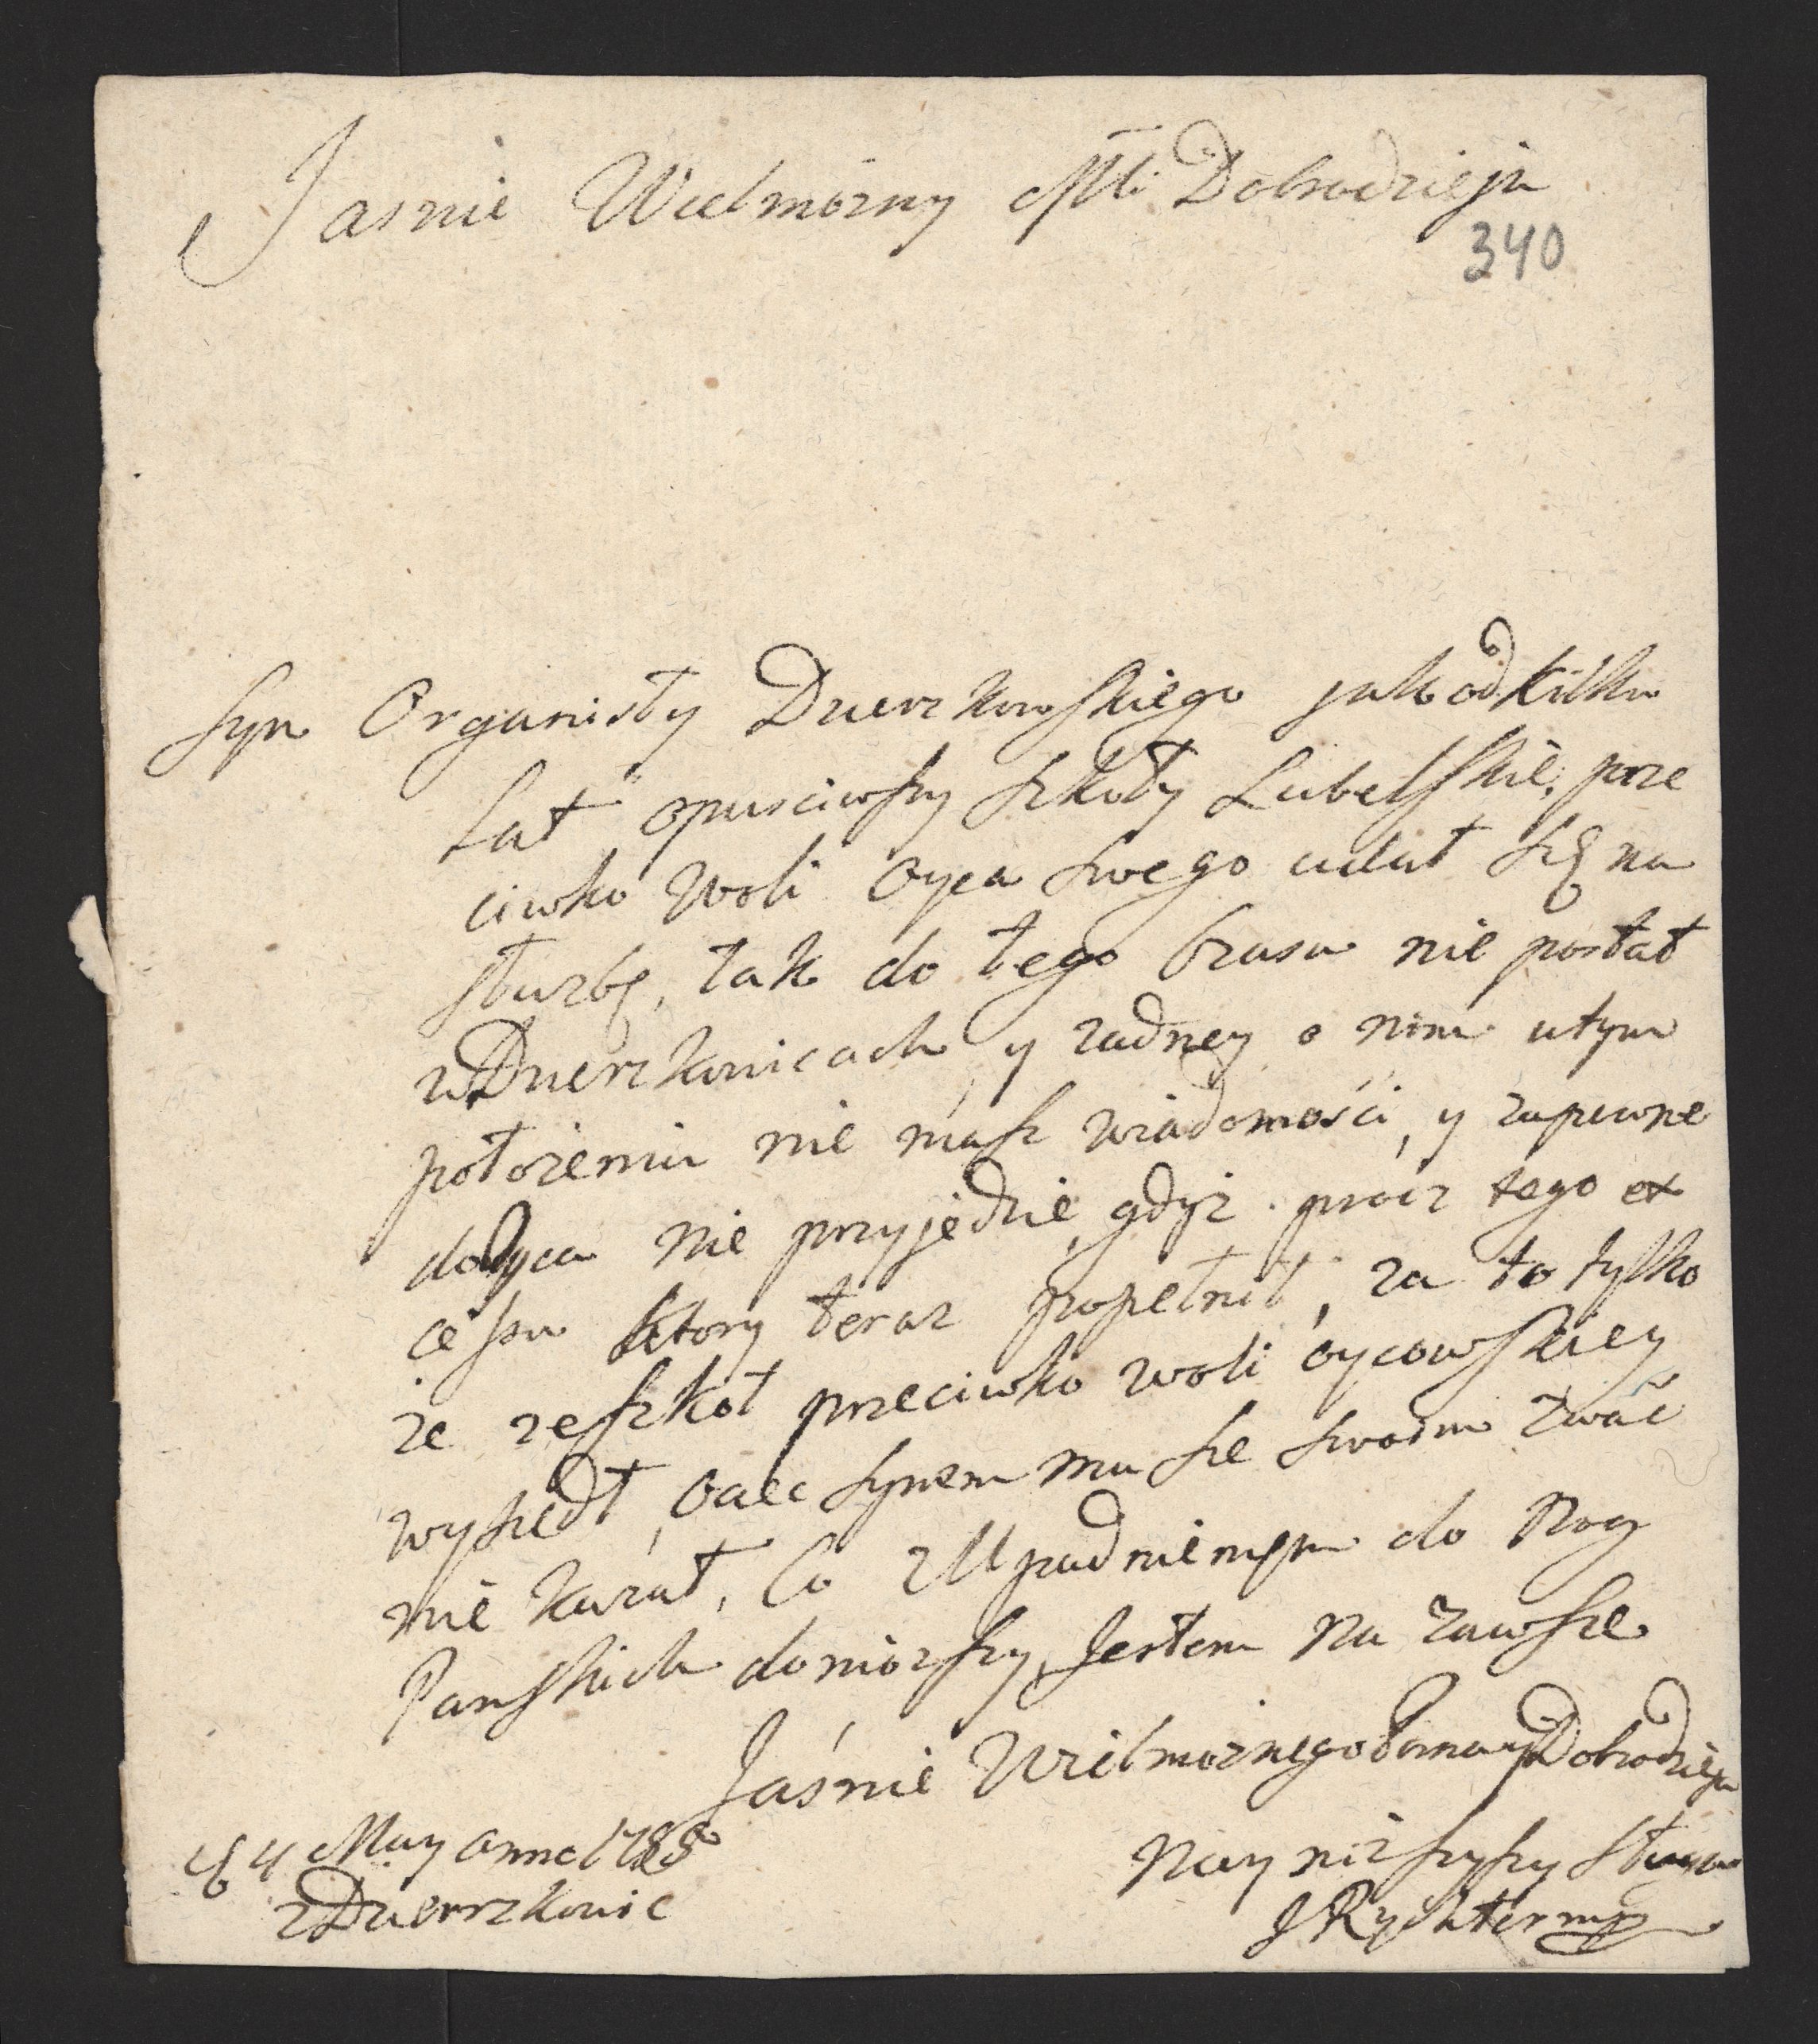 Jasnie Wielmożny Mci Dobrodzieju
340
Syn Organisty Dzierzkowskiego jak od kilku
Lat opusciwszy szkoły Lubelskie, prze
ciwko woli Oyca swego udał się na
służbę, tak do tego Czasu nie postał
w Dzierzkowicach y żadney o nim w tym
położeniu nie masz wiadomości, y zapewne
do Oyca nie przyjędzie, gdyż prócz tego ex
cessu ktory teraz popełnił, za to tylko
że ze szkół przeciwko woli oycowskiey
wyszedł, Oaiec synem mu sie swoim zwać
nie kazał, Co z Upadnieniem do Nog
Panskich doniozszy, Jestem na zawsze
Jaśnie Wielmożnego Pana Dobrodzieja
4 May Anno 1785
z Dzierzkowic
Nayniższyszy Sługa
J Rychter mp